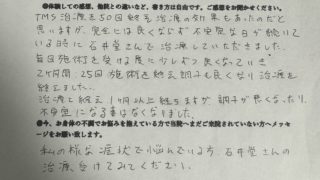 ●体験しての感想、他院との違いなど、書き方は自由です。ご感想をお聞かせください。
TMS治療を50回終え治療の効果もあったのだと
思いますが、完全には良くならず 不安な日が続いて
いる時に石井堂さんで治療していただきました。
施術を受ける度に少しずつ良くなっていき
2ヶ月間 25回施術を終え調子も良くなり治療を
終えました。
治療を終え1ヶ月以上経ちますが調子が良くなったり、
不安になる事はなくなりました。
●今、お身体の不調でお悩みを抱えている方で当院へまだご来院されていない方へメッセー
ジをお願い致します。
私の様な症状で悩んでいる方、石井堂さんの
治療受けてみてください。